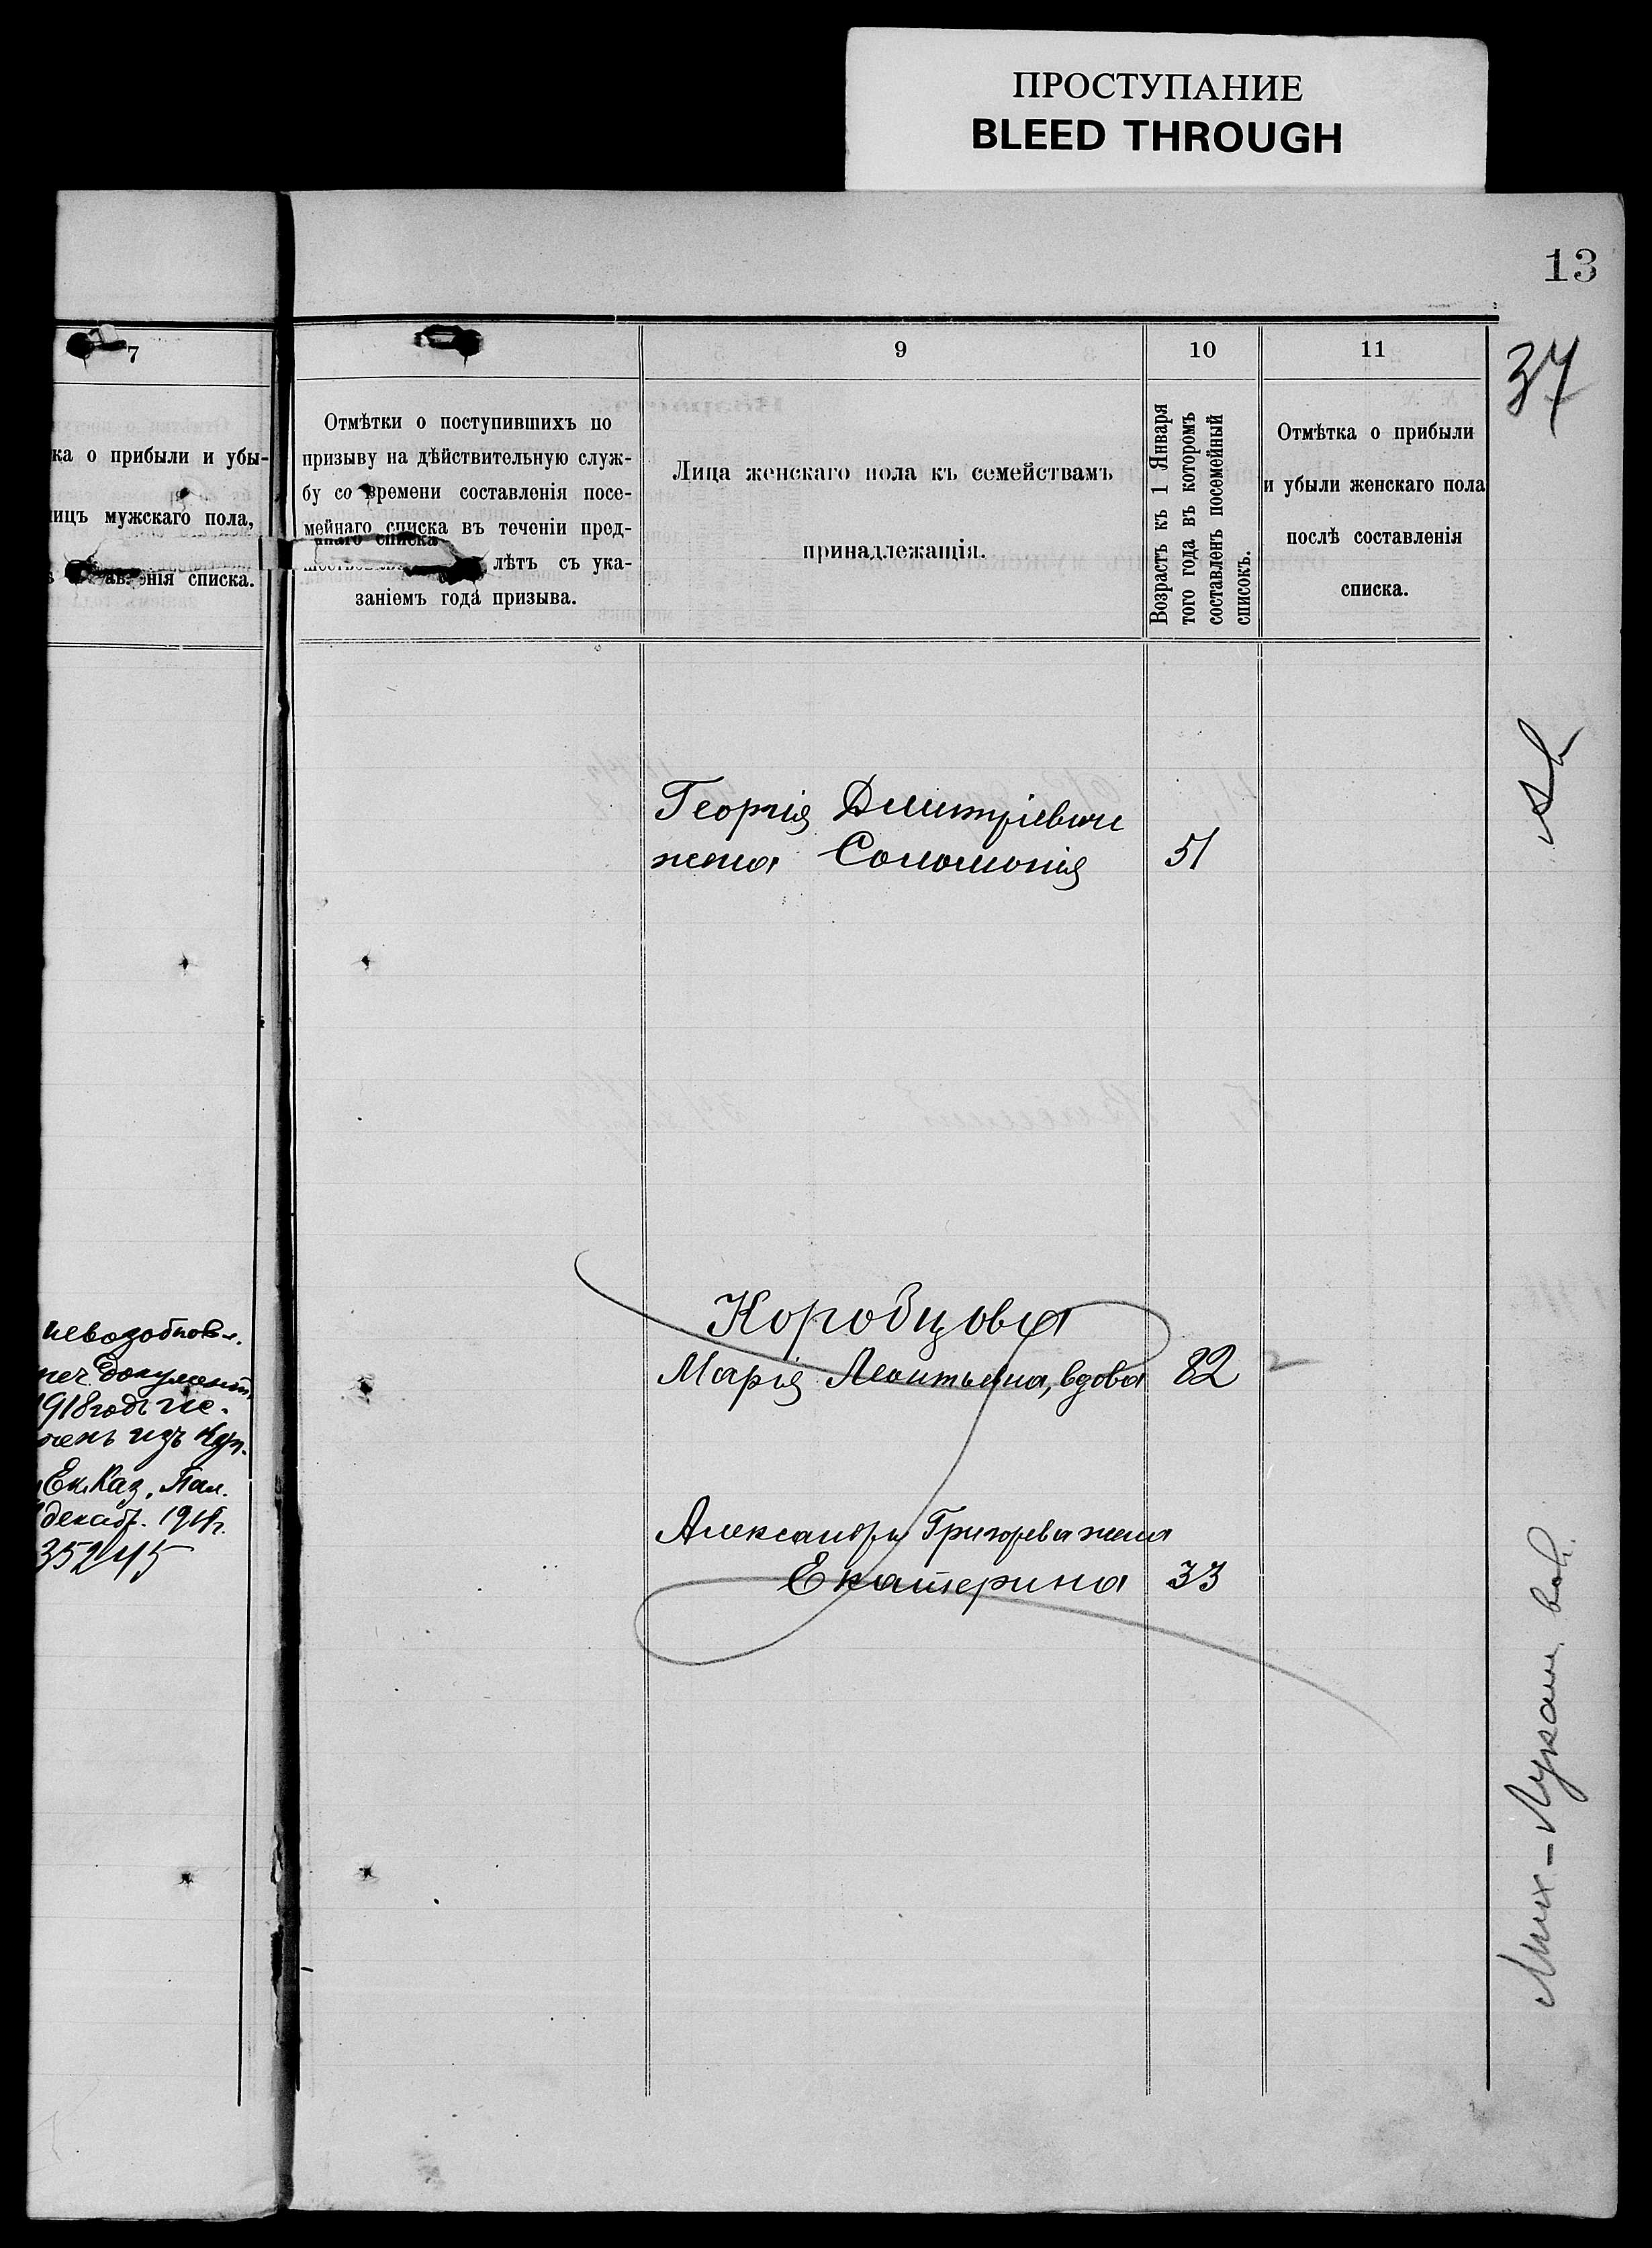 ПРОСТУПАНИЕ
BLEED THROUGH
13
37
7
9
10
11
ка о прибыли и убы-
лицъ мужскаго пола,
списка.
Отмѣтки о поступившихъ по
призыву на дѣйствительную служ-
бу со времени составленія посе-
мейнаго списка въ теченіи пред-
лѣтъ съ ука-
заніемъ года призыва.
Лица женскаго пола къ семействамъ
принадлежащія.
Возрастъ къ 1 Января
того года въ которомъ
составленъ посемейный
списокъ.
Отмѣтка о прибыли
и убыли женскаго пола
послѣ составленія
списка.
Георгія Дмитріевича
жена Соломонія 51
Коробцова
Марія Леонтьевна, вдова 82
Александра Григорьева жена
Екатерина 33
невозобнов.
документ
1918 годъ ис.
чень изъ куп.
Ек. Каз. Пал.
декабр. 191
35245
Мих-Лукам. вол.